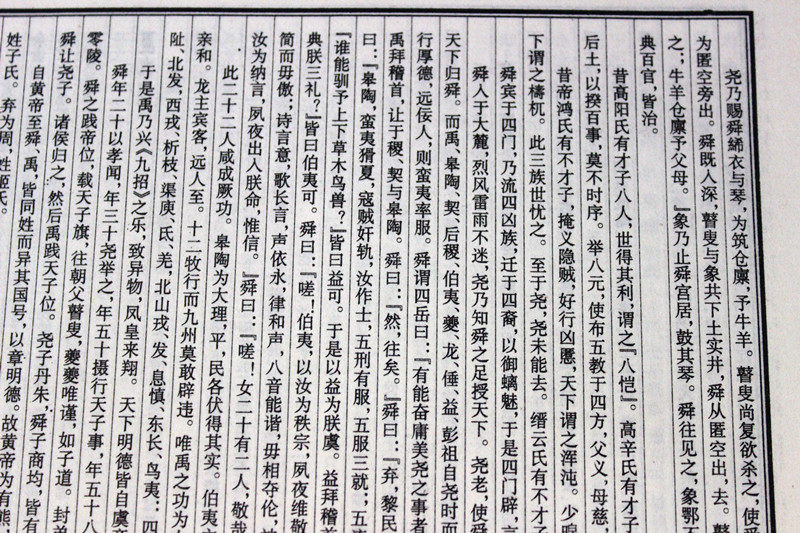 尧乃赐舜絺衣与琴，为筑仓廪，予牛羊。瞽叟尚复欲杀之，使
为匿空旁出。舜既入深，瞽叟与象共下土实井，舜从匿空出，去。瞽
之；牛羊仓廪予父母。』象乃止舜宫居，鼓其琴。舜往见之，象鄂不
典百官，皆治。
昔高阳氏有才子八人，世得其利，谓之『八恺』。高辛氏有才子
后土，以揆百事，莫不时序。举八元，使布五教于四方，父义，母慈，
昔帝鸿氏有不才子，掩义隐贼，好行凶慝，天下谓之浑沌。少暤
下谓之梼杌。此三族世忧之。至于尧，尧未能去。缙云氏有不才子
舜宾于四门，乃流四凶族，迁于四裔，以御螭魅，于是四门辟，言
舜入于大麓，烈风雷雨不迷，尧乃知舜之足授天下。尧老，使舜
天下归舜。而禹、皋陶、契、后稷、伯夷、夔、龙、倕、益、彭祖自尧时而
行厚德，远佞人，则蛮夷率服。舜谓四岳曰：『有能奋庸美尧之事者
禹拜稽首，让于稷、契与皋陶。舜曰：『然，往矣。』舜曰：『弃，黎民
曰：『皋陶，蛮夷猾夏，寇贼奸轨，汝作士，五刑有服，五服三就；五
『谁能驯予上下草木鸟兽？』皆曰益可。于是以益为朕虞。益拜稽首
典朕三礼？』皆曰伯夷可。舜曰：『嗟！伯夷，以汝为秩宗，夙夜维敬
简而毋傲；诗言意，歌长言，声依永，律和声，八音能谐，毋相夺伦，
汝为纳言，夙夜出入朕命，惟信。』舜曰：『嗟！女二十有二人，敬哉
此二十二人咸成厥功。皋陶为大理，平，民各伏得其实。伯夷主
亲和。龙主宾客，远人至。十二牧行而九州莫敢辟违。唯禹之功为
阯、北发，西戎、析枝、渠庾、氐、羌，北山戎、发、息慎，东长、鸟夷：四
于是禹乃兴《九招》之乐，致异物，凤皇来翔。天下明德皆自虞帝
舜年二十以孝闻，年三十尧举之，年五十摄行天子事，年五十八
零陵。舜之践帝位，载天子旗，往朝父瞽叟，夔夔唯谨，如子道。封弟
舜让尧子。诸侯归之，然后禹践天子位。尧子丹朱，舜子商均，皆有
自黄帝至舜、禹，皆同姓而异其国号，以章明德。故黄帝为有熊，
姓子氏。弃为周，姓姬氏。